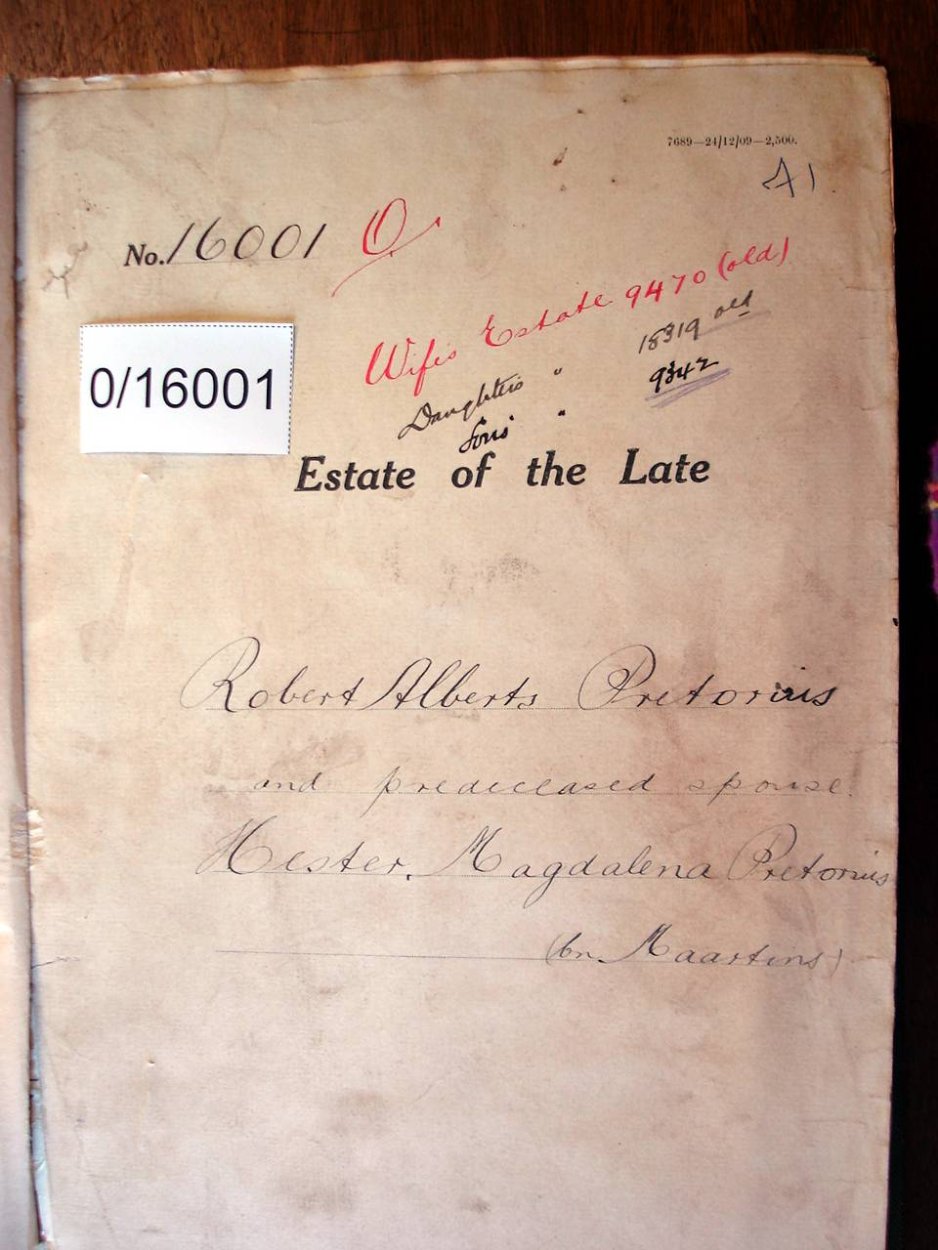 7689—24/12/09—2,500.
41
No. 16001 O.
Wife's Estate 9470 (old)
0/16001
Daughters " 18319 old
Sons " 9342
Estate of the Late
Robert Alberts Pretorius
and predeceased spouse.
Hester Magdalena Pretorius
(bn. Maartins)